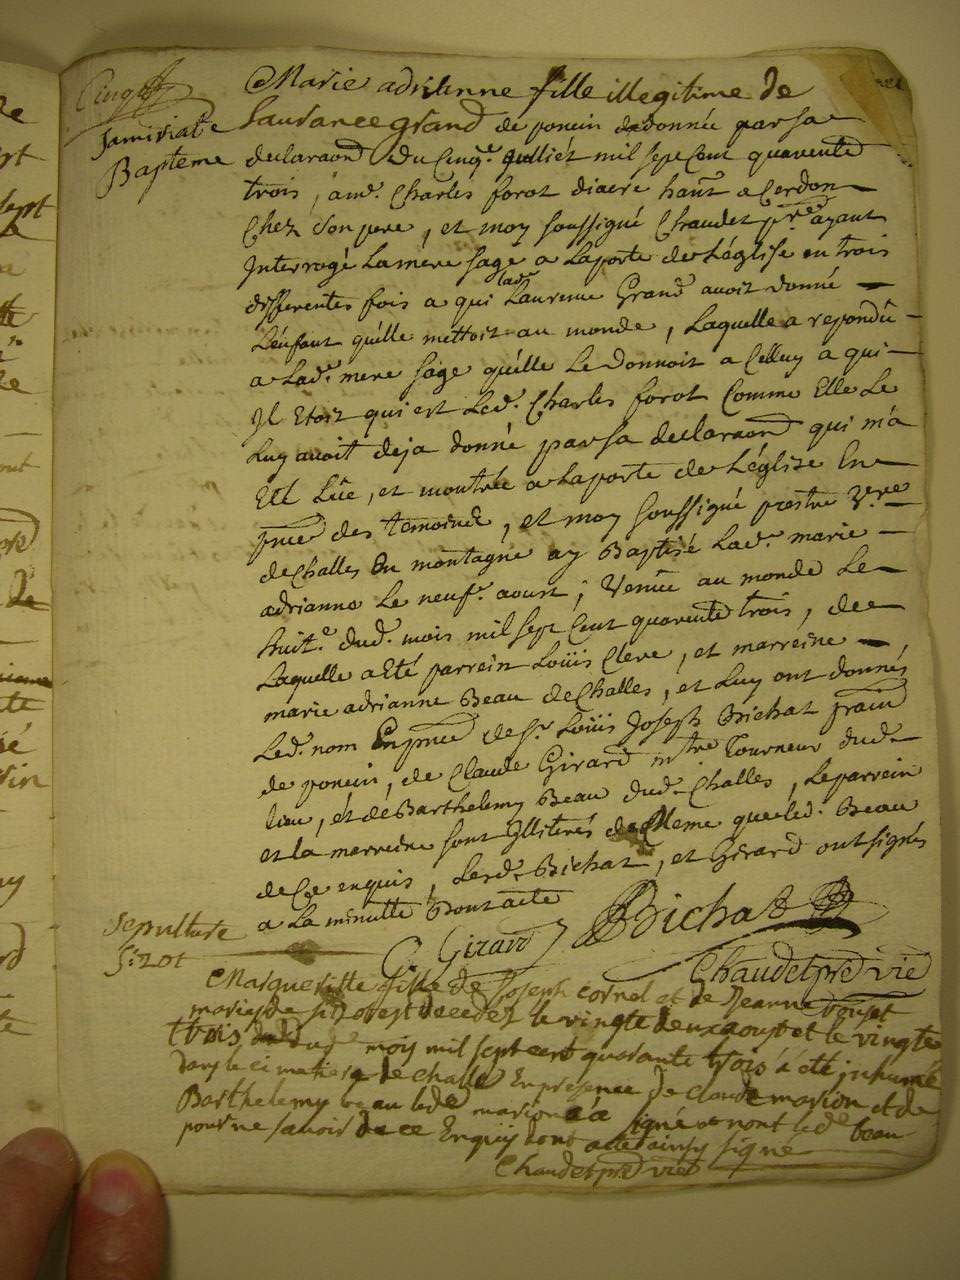 Marie adrienne fille illegitime de
Jamiriat
Bapteme
Laurance grand de poncin dedonnée par sa
declaraõn du Cinqe. Juilliet mil sept Cent quarente
trois, a me. Charles forot diacre hañt a Cerdon
Chez son pere, et moy soussigné Chaudet pre ayant
Interrogé La mere sage a La porte de L'église en trois
differentes fois a qui lade Laurence Grand avoit donné
L'enfant qu'elle mettoit au monde, Laquelle a repondû
a Lade. mere sage qu'elle Le donnoit a Celluy a qui
Il Etoit qui est Led. Charles forot Comme Elle Le
Luy avoit deja donné par sa declaraõn qui m'a
Eté Lüe, et montrée a La porte de L'église En
pnce des temoins, et moy soussigné prestre
de Challes En montagne ay Baptisé Lade. marie
adrianne Le neufe. aoust, Venüe au monde Le
huite. dud. mois mil sept Cent quarente trois, de
Laquelle a Eté parrein Loüis Cleve, et marreine
marie adrianne Beau de Challes, et Luy ont donnés
Led. nom En pnce de sr. Loüis Joseph Bichat
de poncin, de Claude Girard mtre Tourneur dud.
lieu, et de Barthelemy Beau dud. Challes, Le parrein
et la marreine sont Illiterés de meme que led. Beau
de Ce enquis, Lesd. Bichat, et Girard ont signés
a La minutte Dont acte
C. Girard Bichat
Chaudet pre vic
Sepulture
St: Zot
Margueritte fille de Joseph cornel et de Jeanne
mariés de est decedez le vingte deux aoust et le vingte
trois dud mois mil sept cent quarante trois a été inhumé
dans le cimetiere de challe En presence de claude marion et de
Barthelemy beau lede marion a signé et non lede beau
pour ne savoir de ce Enquis dont acte ainsy signé
Chaudet pre vic